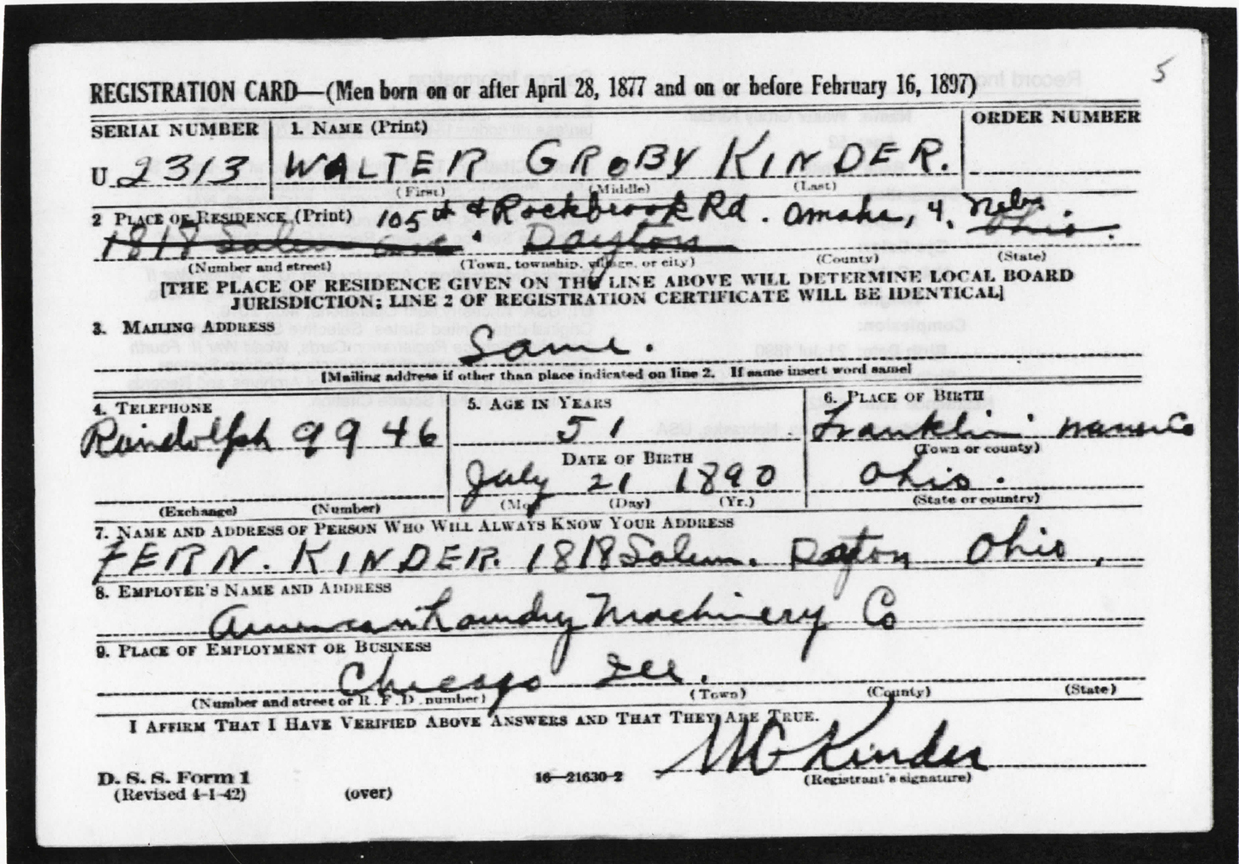 5
REGISTRATION CARD—(Men born on or after April 28, 1877 and on or before February 16, 1897)
SERIAL NUMBER 1. NAME (Print) ORDER NUMBER
U 2313 WALTER GROBY KINDER.
(First) (Middle) (Last)
2 PLACE OF RESIDENCE (Print) 105th & Rockbrook Rd. Omaha, 4, Nebr
1818 Salem Ave. Dayton Ohio.
(Number and street) (Town, township, village, or city) (County) (State)
[THE PLACE OF RESIDENCE GIVEN ON THE LINE ABOVE WILL DETERMINE LOCAL BOARD
JURISDICTION; LINE 2 OF REGISTRATION CERTIFICATE WILL BE IDENTICAL]
3. MAILING ADDRESS
Same.
[Mailing address if other than place indicated on line 2. If same insert word same]
4. TELEPHONE 5. AGE IN YEARS 6. PLACE OF BIRTH
Randolph 9946 51 Franklin Warren Co
DATE OF BIRTH (Town or county)
July 21 1890 Ohio.
(Exchange) (Number) (Mo.) (Day) (Yr.) (State or country)
7. NAME AND ADDRESS OF PERSON WHO WILL ALWAYS KNOW YOUR ADDRESS
FERN. KINDER. 1818 Salem. Dayton Ohio.
8. EMPLOYER'S NAME AND ADDRESS
American Laundry Machinery Co
9. PLACE OF EMPLOYMENT OR BUSINESS
Chicago Ill.
(Number and street or R. F. D. number) (Town) (County) (State)
I AFFIRM THAT I HAVE VERIFIED ABOVE ANSWERS AND THAT THEY ARE TRUE.
WG Kinder
D. S. S. Form 1 16—21630-2 (Registrant's signature)
(Revised 4-1-42) (over)